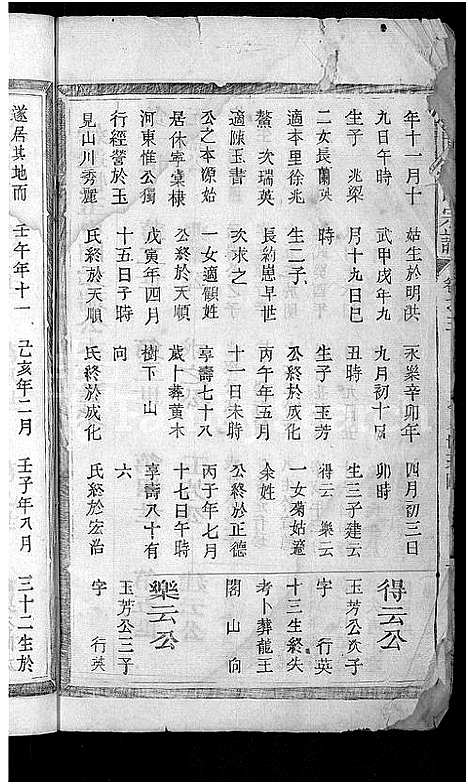 年十一月十
九日午時
生子 兆梁
二女長蘭英
適本里徐兆
鰲 次瑞英
適陳玉書
公之本源始
居休寧棠棣
河東惟公獨
行經營於玉
見山川秀麗
遂居其地而
姑生於明洪
武甲戌年九
月十九日巳
時
生二子
長約患早世
次求之
一女適顧姓
公終於天順
戊寅年四月
十五日子時
氏終於天順
壬午年十一
永樂辛卯年
九月初十日
丑時
生子 玉芳
公終於成化
丙午年五月
十一日未時
享壽七十八
歲卜葬黄木
樹下山
向
氏終於成化
己亥年二月
四月初三日
卯時
生三子建云
得云 樂云
一女菊姑適
余姓
公終於正德
丙子年七月
十七日午時
享壽八十有
六
氏終於宏治
壬子年八月
得云公
玉芳公次子
字 行英
十三生終失
考卜葬龍王
閣山向
樂云公
玉芳公三子
字 行英
三十二生於